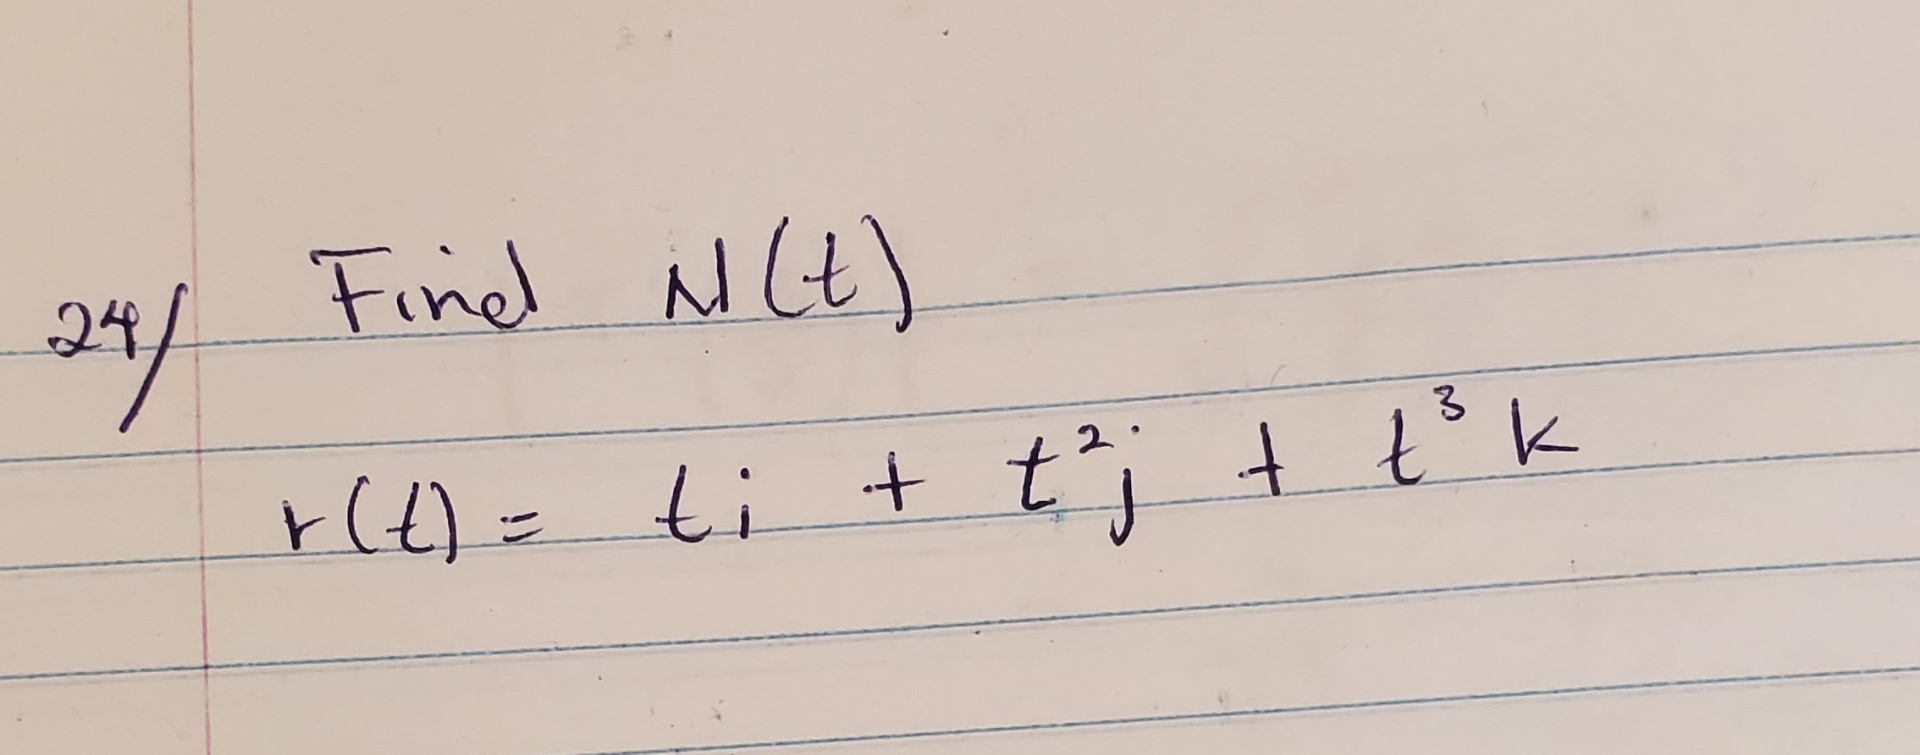 24/ Find N(t)
r(t) = ti + t²j + t³k